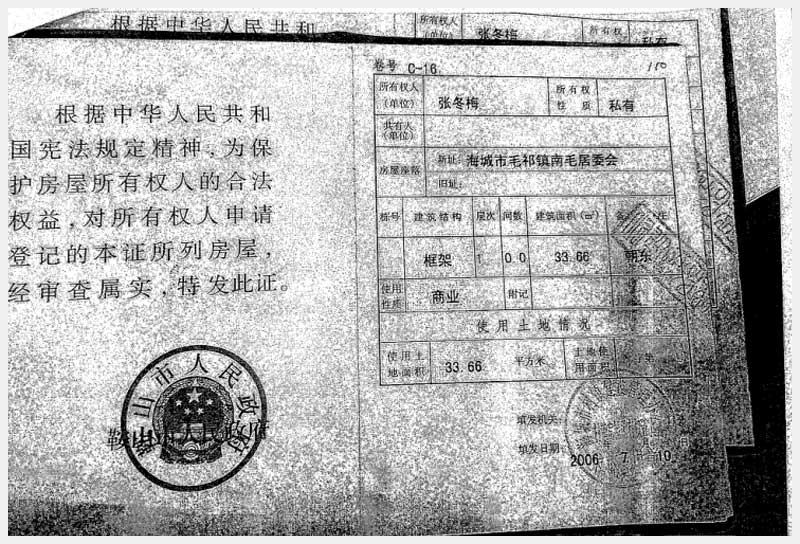 根据中华人民共和
所有权人
(单位)
张冬梅
所有权
私有
根据中华人民共和
国宪法规定精神,为保
护房屋所有权人的合法
权益,对所有权人申请
登记的本证所列房屋,
经审查属实,特发此证。
鞍山市人民政府
卷号 C-16
110
所有权人
(单位) 张冬梅 所有权
性质 私有
共有人
(单位)
房屋座落 新址: 海城市毛祁镇南毛居委会
旧址:
栋号 建筑结构 层次 间数 建筑面积(㎡) 备注
框架 1 0 0 33.66
使用
性质 商业 附记
使用土地情况
使用土
地面积 33.66 平方米 土地使
用面积
填发机关:
填发日期: 2006 7 10